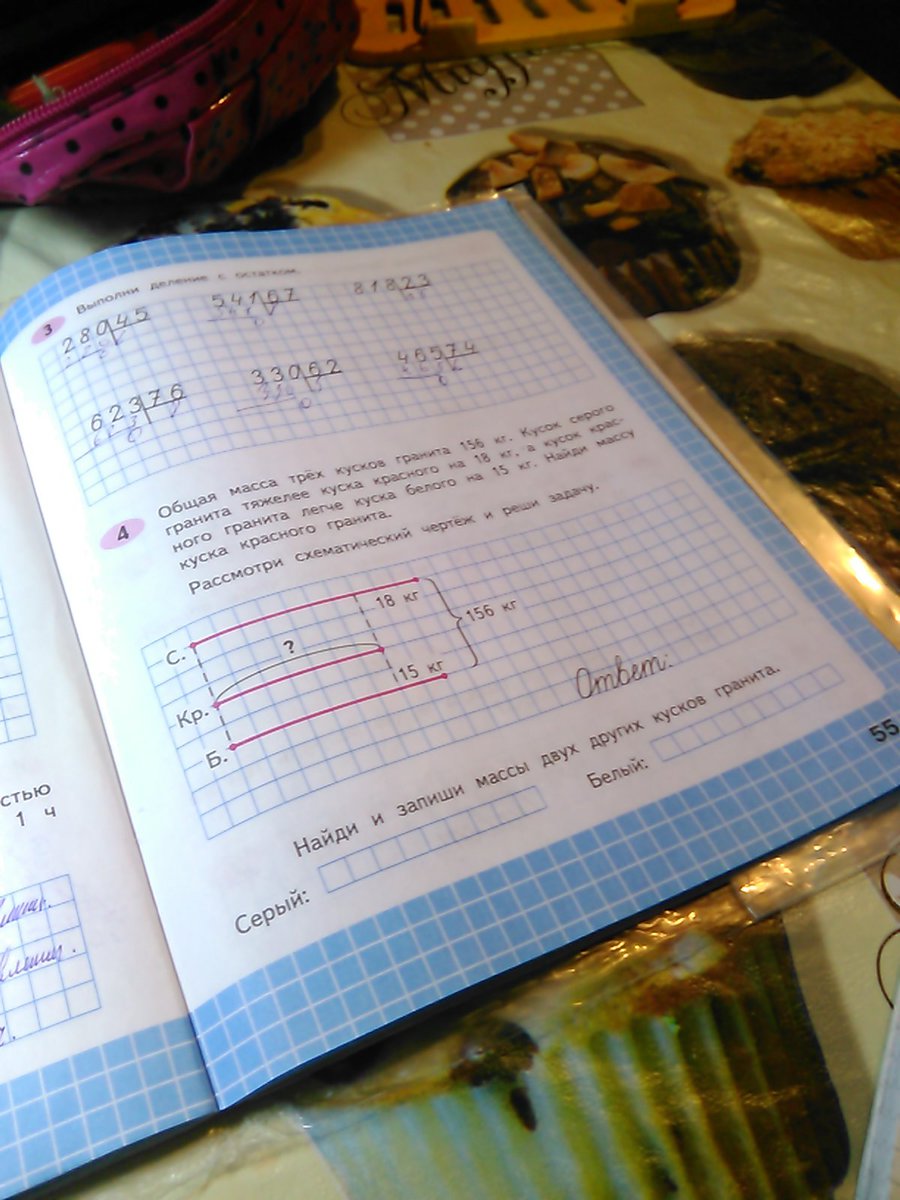 3 Выполни деление с остатком.
280 45 541 67 818 23
623 76 330 62 465 74
4 Общая масса трёх кусков гранита 156 кг. Кусок серого
гранита тяжелее куска красного на 18 кг, а кусок крас-
ного гранита легче куска белого на 15 кг. Найди массу
куска красного гранита.
Рассмотри схематический чертёж и реши задачу.
С. 18 кг
? 156 кг
Кр. 15 кг
Б.
Ответ:
Найди и запиши массы двух других кусков гранита.
Серый: Белый:
55
стью
1 ч